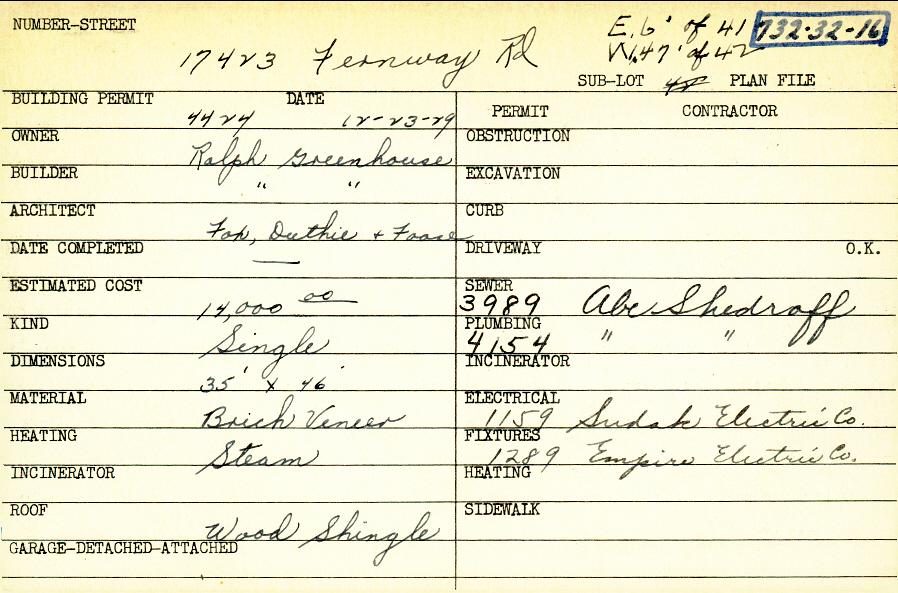 NUMBER-STREET
E. 6' of 41 732-32-16
17423 Fernway Rd W. 47' of 42
SUB-LOT PLAN FILE
BUILDING PERMIT DATE PERMIT CONTRACTOR
4424 12-23-29
OWNER OBSTRUCTION
Ralph Greenhouse
BUILDER EXCAVATION
" "
ARCHITECT CURB
Fox, Duthie + Foose
DATE COMPLETED DRIVEWAY O.K.
—
ESTIMATED COST SEWER
14,000 00 3989 Abe Shedroff
KIND PLUMBING
Single 4154 " "
DIMENSIONS INCINERATOR
35' x 46'
MATERIAL ELECTRICAL
Brick Veneer 1159 Sudak Electric Co.
HEATING FIXTURES
Steam 1289 Empire Electric Co.
INCINERATOR HEATING
ROOF SIDEWALK
Wood Shingle
GARAGE-DETACHED-ATTACHED